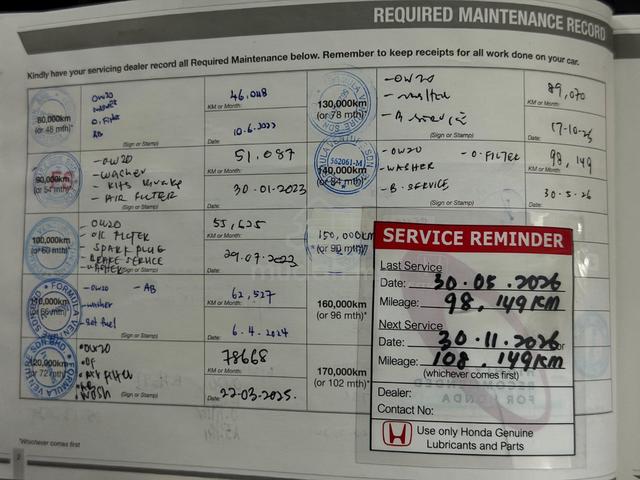 REQUIRED MAINTENANCE RECORD
Kindly have your servicing dealer record all Required Maintenance below. Remember to keep receipts for all work done on your car.
80,000km
(or 48 mth)*
0W20
washer
O. Filter
AB
(Sign or Stamp)
46,048
KM or Month:
10.6.2022
Date:
90,000km
(or 54 mth)*
- 0W20
- WASHER
- AIR FILTER
(Sign or Stamp)
51,087
KM or Month:
30-01-2023
Date:
100,000km
(or 60 mth)*
- 0W20
- OIL FILTER
- SPARK PLUG
- BRAKE SERVICE
- WASHER
(Sign or Stamp)
55,625
KM or Month:
29.07.2023
Date:
110,000km
(or 66 mth)*
- 0W20 - AB
- washer
62,527
KM or Month:
6.4.2024
Date:
120,000km
(or 72 mth)*
• 0W20
• OF
• AIR FILTER
• AB
• WASH
(Sign or Stamp)
78668
KM or Month:
22-03-2025.
Date:
130,000km
(or 78 mth)*
- 0W20
(Sign or Stamp)
89,070
KM or Month:
17-10-25
Date:
140,000km
(or 84 mth)*
562061-M
- 0W20 - O. FILTER
- WASHER
- B. SERVICE
(Sign or Stamp)
98,149
KM or Month:
30-5-26
Date:
150,000km
(or 90 mth)*
160,000km
(or 96 mth)*
170,000km
(or 102 mth)*
SERVICE REMINDER
Last Service
Date: 30.05.2026
Mileage: 98,149KM
Next Service
Date: 30.11.2026 or
Mileage: 108 149KM
(whichever comes first)
Dealer:
Contact No:
Use only Honda Genuine
Lubricants and Parts
*Whichever comes first
2